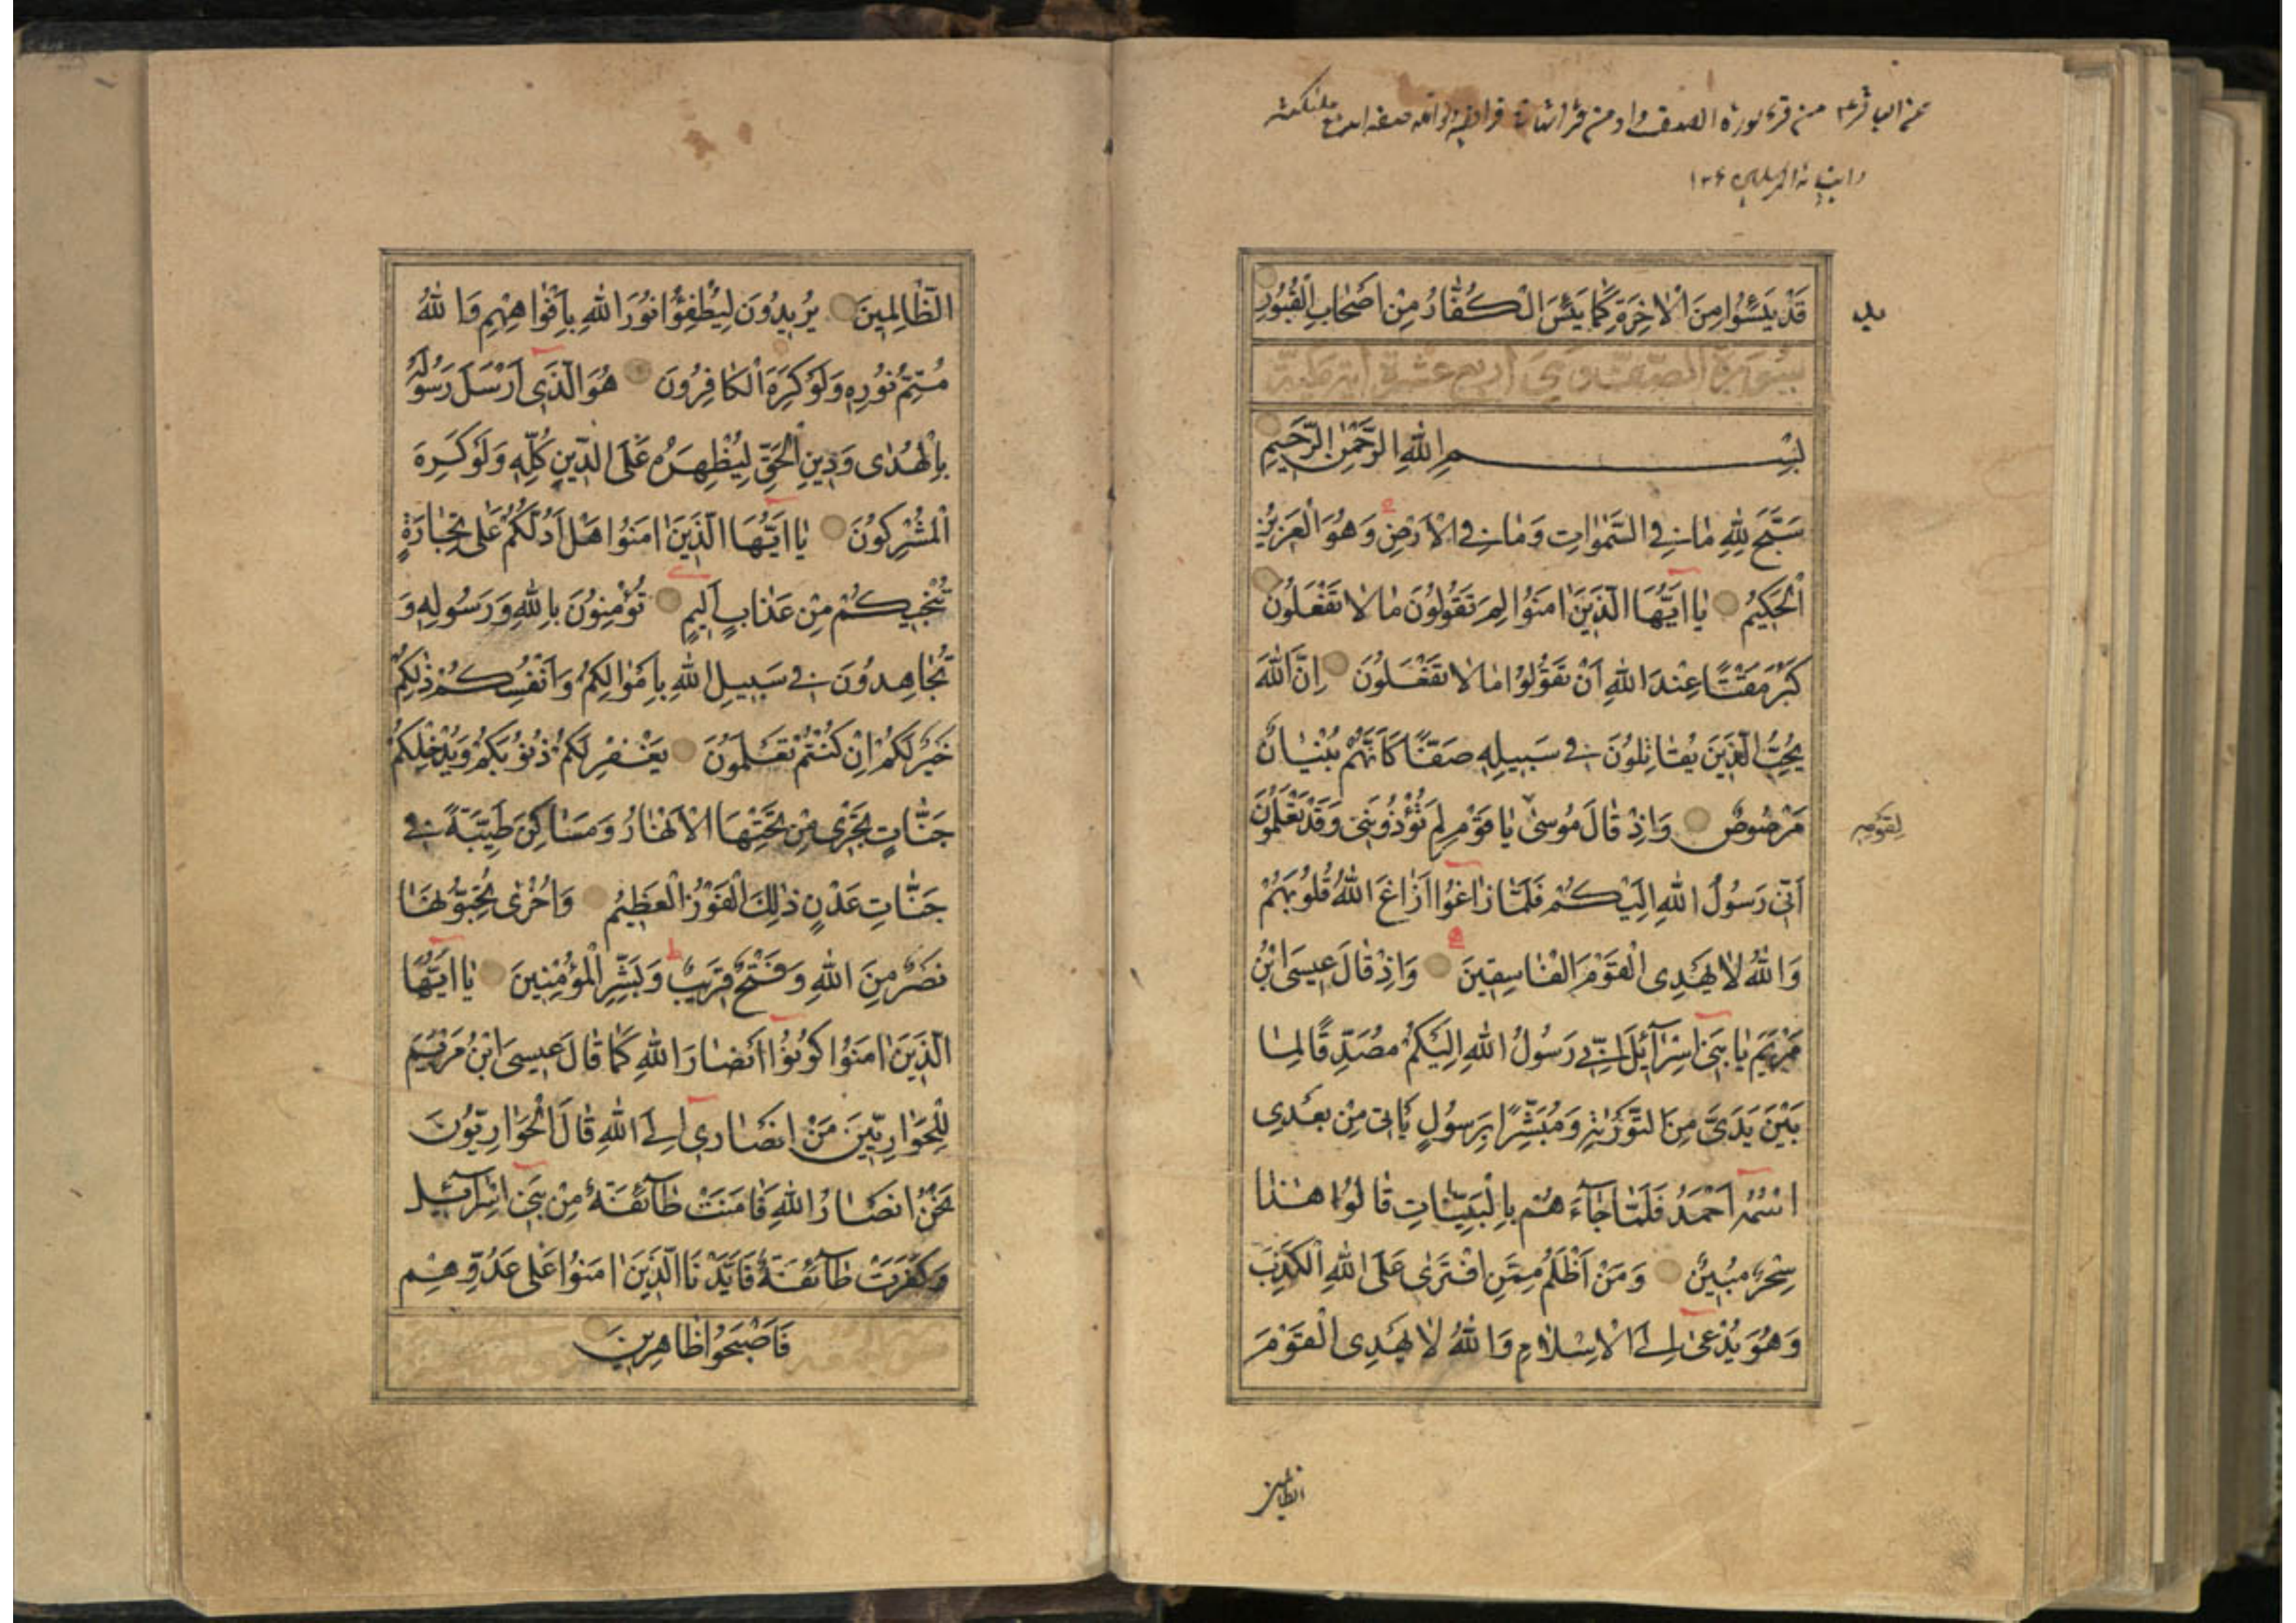 عن الباقر ع من قرء سورة الصف وادمن قرائتها في فرائضه ونوافله صفه الله مع ملئكته
وانبيائه المرسلين
قَدْ يَئِسُوا مِنَ الْاٰخِرَةِ كَمٰا يَئِسَ الْكُفّٰارُ مِنْ اَصْحٰابِ الْقُبُورِ
سورة الصف وهي اربع عشرة اية
بِسْمِ اللهِ الرَّحْمٰنِ الرَّحِيمِ
سَبَّحَ لِلّٰهِ مٰا فِي السَّمٰوٰاتِ وَمٰا فِي الْاَرْضِ وَهُوَ الْعَزِيزُ
الْحَكِيمُ يٰا اَيُّهَا الَّذِينَ اٰمَنُوا لِمَ تَقُولُونَ مٰا لٰا تَفْعَلُونَ
كَبُرَ مَقْتًا عِنْدَ اللهِ اَنْ تَقُولُوا مٰا لٰا تَفْعَلُونَ اِنَّ اللهَ
يُحِبُّ الَّذِينَ يُقٰاتِلُونَ فِي سَبِيلِهِ صَفًّا كَاَنَّهُمْ بُنْيٰانٌ
مَرْصُوصٌ وَاِذْ قٰالَ مُوسىٰ يٰا قَوْمِ لِمَ تُؤْذُونَنِي وَقَدْ تَعْلَمُونَ
لِقَوْمِهِ
اَنِّي رَسُولُ اللهِ اِلَيْكُمْ فَلَمّٰا زٰاغُوا اَزٰاغَ اللهُ قُلُوبَهُمْ
وَاللهُ لٰا يَهْدِي الْقَوْمَ الْفٰاسِقِينَ وَاِذْ قٰالَ عِيسَى ابْنُ
مَرْيَمَ يٰا بَنِي اِسْرٰآئِلَ اِنِّي رَسُولُ اللهِ اِلَيْكُمْ مُصَدِّقًا لِمٰا
بَيْنَ يَدَيَّ مِنَ التَّوْرٰيةِ وَمُبَشِّرًا بِرَسُولٍ يَأتِي مِنْ بَعْدِي
اسْمُهُ اَحْمَدُ فَلَمّٰا جٰآءَهُمْ بِالْبَيِّنٰاتِ قٰالُوا هٰذٰا
سِحْرٌ مُبِينٌ وَمَنْ اَظْلَمُ مِمَّنِ افْتَرىٰ عَلَى اللهِ الْكَذِبَ
وَهُوَ يُدْعىٰ اِلَى الْاِسْلٰامِ وَاللهُ لٰا يَهْدِي الْقَوْمَ
الظالمين
الظّٰالِمِينَ يُرِيدُونَ لِيُطْفِؤُا نُورَ اللهِ بِاَفْوٰاهِهِمِ وَاللهُ
مُتِمُّ نُورِهِ وَلَوْ كَرِهَ الْكٰافِرُونَ هُوَ الَّذِي اَرْسَلَ رَسُولَهُ
بِالْهُدٰى وَدِينِ الْحَقِّ لِيُظْهِرَهُ عَلَى الدِّينِ كُلِّهِ وَلَوْ كَرِهَ
الْمُشْرِكُونَ يٰا اَيُّهَا الَّذِينَ اٰمَنُوا هَلْ اَدُلُّكُمْ عَلىٰ تِجٰارَةٍ
تُنْجِيكُمْ مِنْ عَذٰابٍ اَلِيمٍ تُؤْمِنُونَ بِاللهِ وَرَسُولِهِ وَ
تُجٰاهِدُونَ فِي سَبِيلِ اللهِ بِاَمْوٰالِكُمْ وَاَنْفُسِكُمْ ذٰلِكُمْ
خَيْرٌ لَكُمْ اِنْ كُنْتُمْ تَعْلَمُونَ يَغْفِرْ لَكُمْ ذُنُوبَكُمْ وَيُدْخِلْكُمْ
جَنّٰاتٍ تَجْرِي مِنْ تَحْتِهَا الْاَنْهٰارُ وَمَسٰاكِنَ طَيِّبَةً فِي
جَنّٰاتِ عَدْنٍ ذٰلِكَ الْفَوْزُ الْعَظِيمُ وَاُخْرىٰ تُحِبُّونَهٰا
نَصْرٌ مِنَ اللهِ وَفَتْحٌ قَرِيبٌ وَبَشِّرِ الْمُؤْمِنِينَ يٰا اَيُّهَا
الَّذِينَ اٰمَنُوا كُونُوا اَنْصٰارَ اللهِ كَمٰا قٰالَ عِيسَى ابْنُ مَرْيَمَ
لِلْحَوٰارِيِّينَ مَنْ اَنْصٰارِي اِلَى اللهِ قٰالَ الْحَوٰارِيُّونَ
نَحْنُ اَنْصٰارُ اللهِ فَاٰمَنَتْ طٰآئِفَةٌ مِنْ بَنِي اِسْرٰآئِيلَ
وَكَفَرَتْ طٰآئِفَةٌ فَاَيَّدْنَا الَّذِينَ اٰمَنُوا عَلىٰ عَدُوِّهِمْ
فَاَصْبَحُوا ظٰاهِرِينَ